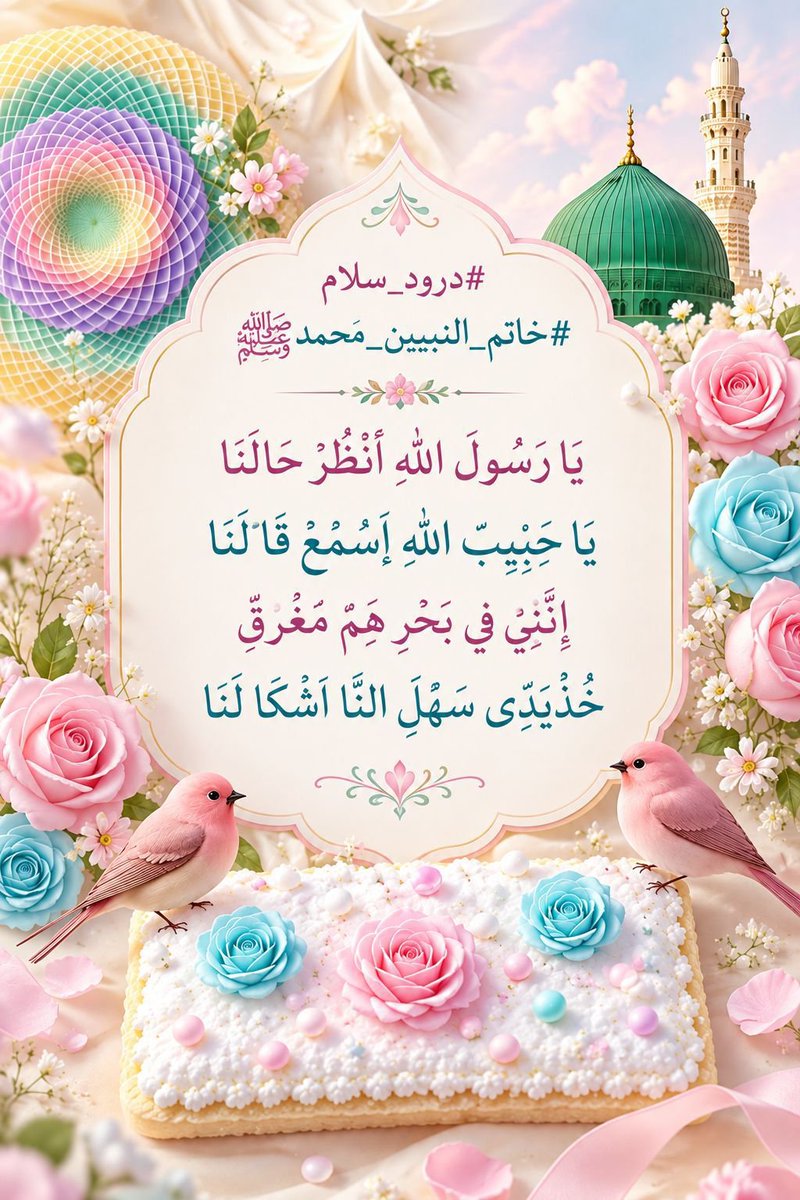 #درود_سلام
#خاتم_النبيين_مَحمد ﷺ
يَا رَسُولَ اللهِ أنْظُرْ حَالَنَا
يَا حَبِيبّ اللهِ إَسُمْعْ قَالَنَا
إِنَّنِيْ في بَحْرِ هَمّ مُغْرقّ
خُذْيَدِّى سَهّلَ النَّا اَشْكَا لَنَا